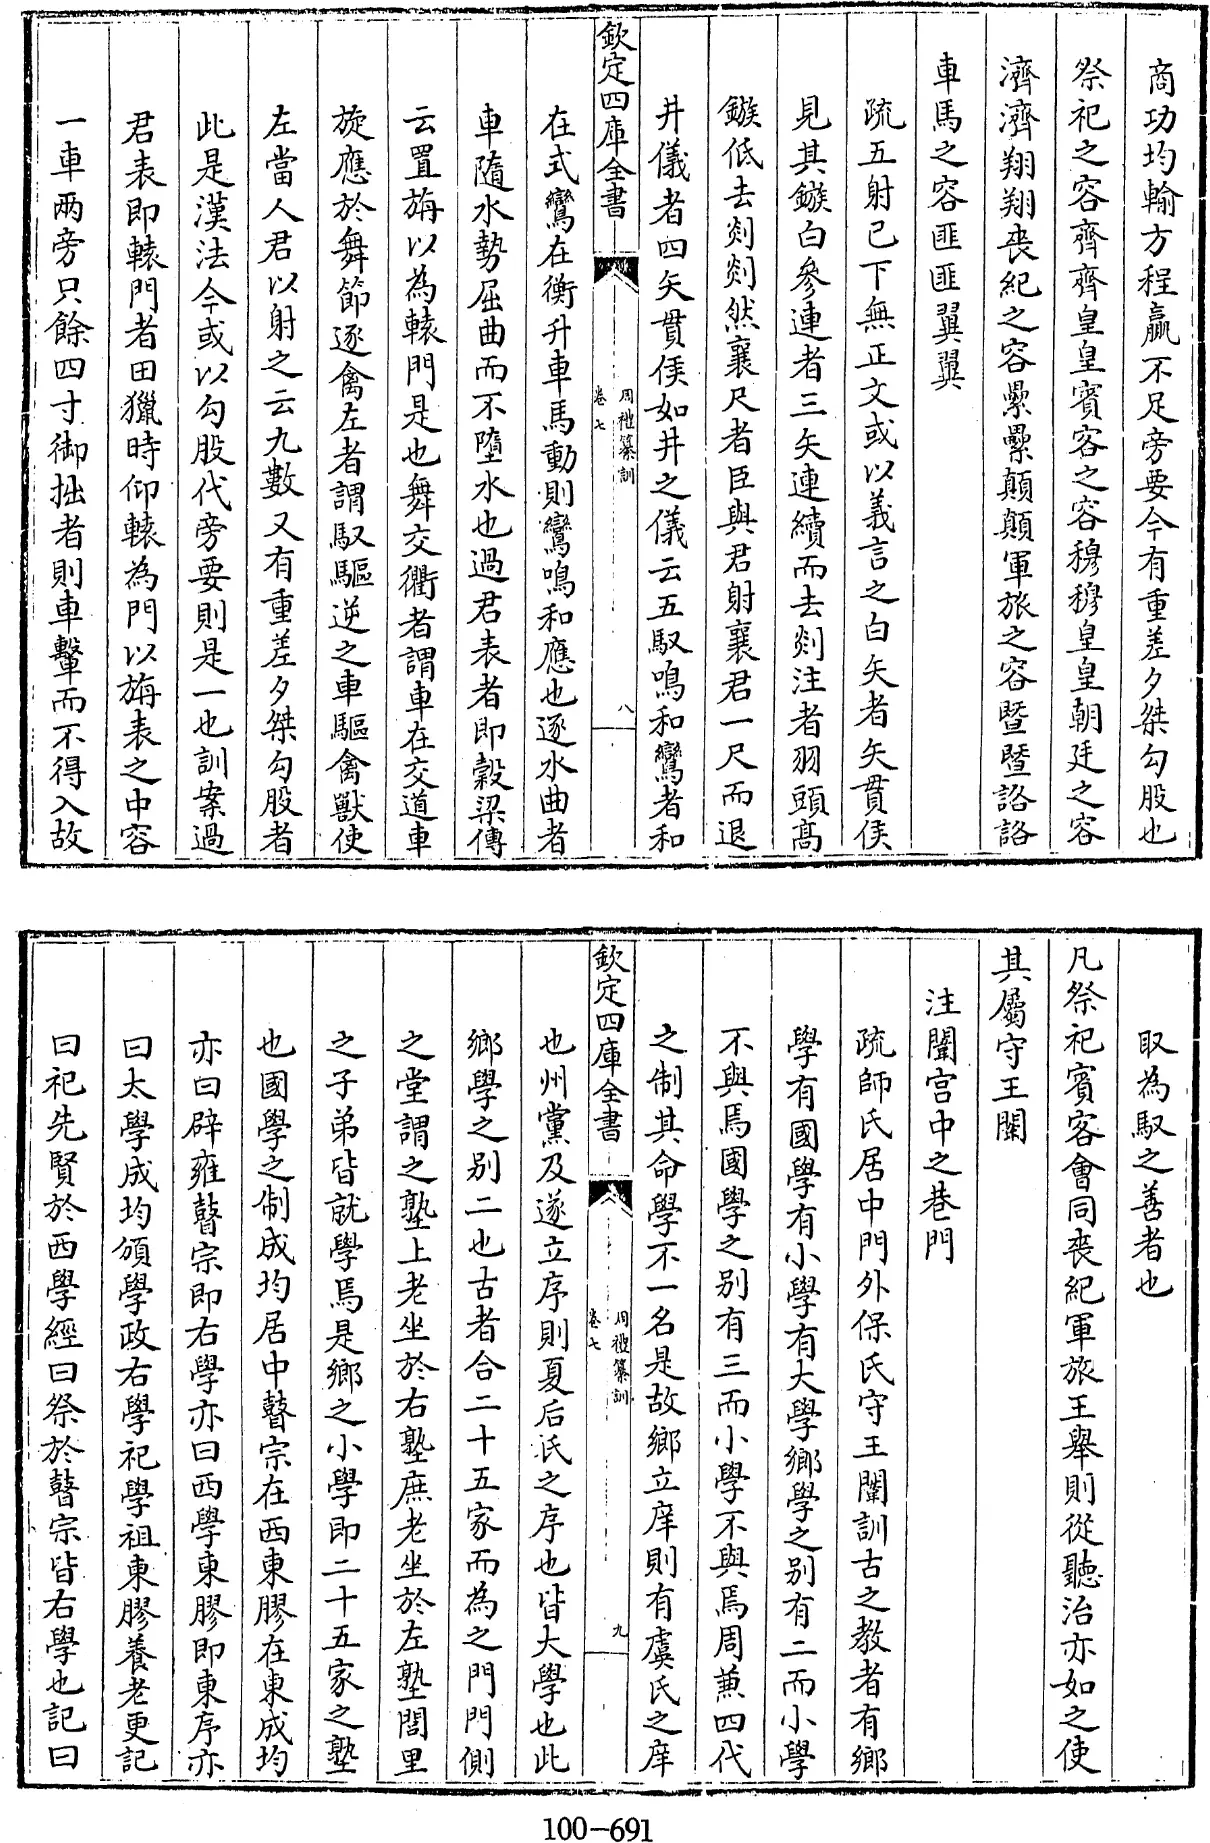 商功均輸方程贏不足旁要今有重差夕桀勾股也
祭祀之容齊齊皇皇賓客之容穆穆皇皇朝廷之容
濟濟翔翔喪紀之容纍纍顛顛軍旅之容暨暨詻詻
車馬之容匪匪翼翼
疏五射已下無正文或以義言之白矢者矢貫侯
見其鏃白參連者三矢連續而去剡注者羽頭高
鏃低去剡剡然襄尺者臣與君射襄君一尺而退
井儀者四矢貫侯如井之儀云五馭鳴和鸞者和
欽定四庫全書
周禮纂訓
卷七
八
在式鸞在衡升車馬動則鸞鳴和應也逐水曲者
車隨水勢屈曲而不墮水也過君表者即穀梁傳
云置旃以為轅門是也舞交衢者謂車在交道車
旋應於舞節逐禽左者謂馭驅逆之車驅禽獸使
左當人君以射之云九數又有重差夕桀勾股者
此是漢法今或以勾股代旁要則是一也訓案過
君表即轅門者田獵時仰轅為門以旃表之中容
一車兩旁只餘四寸御拙者則車轚而不得入故
取為馭之善者也
凡祭祀賓客會同喪紀軍旅王舉則從聽治亦如之使
其屬守王闈
注闈宫中之巷門
疏師氏居中門外保氏守王闈訓古之教者有鄉
學有國學有小學有大學鄉學之别有二而小學
不與焉國學之别有三而小學不與焉周兼四代
之制其命學不一名是故鄉立庠則有虞氏之庠
欽定四庫全書
周禮纂訓
卷七
九
也州黨及遂立序則夏后氏之序也皆大學也此
鄉學之别二也古者合二十五家而為之門門側
之堂謂之塾上老坐於右塾庶老坐於左塾閭里
之子弟皆就學焉是鄉之小學即二十五家之塾
也國學之制成均居中瞽宗在西東膠在東成均
亦曰辟雍瞽宗即右學亦曰西學東膠即東序亦
曰太學成均頒學政右學祀學祖東膠養老更記
曰祀先賢於西學經曰祭於瞽宗皆右學也記曰
100-691